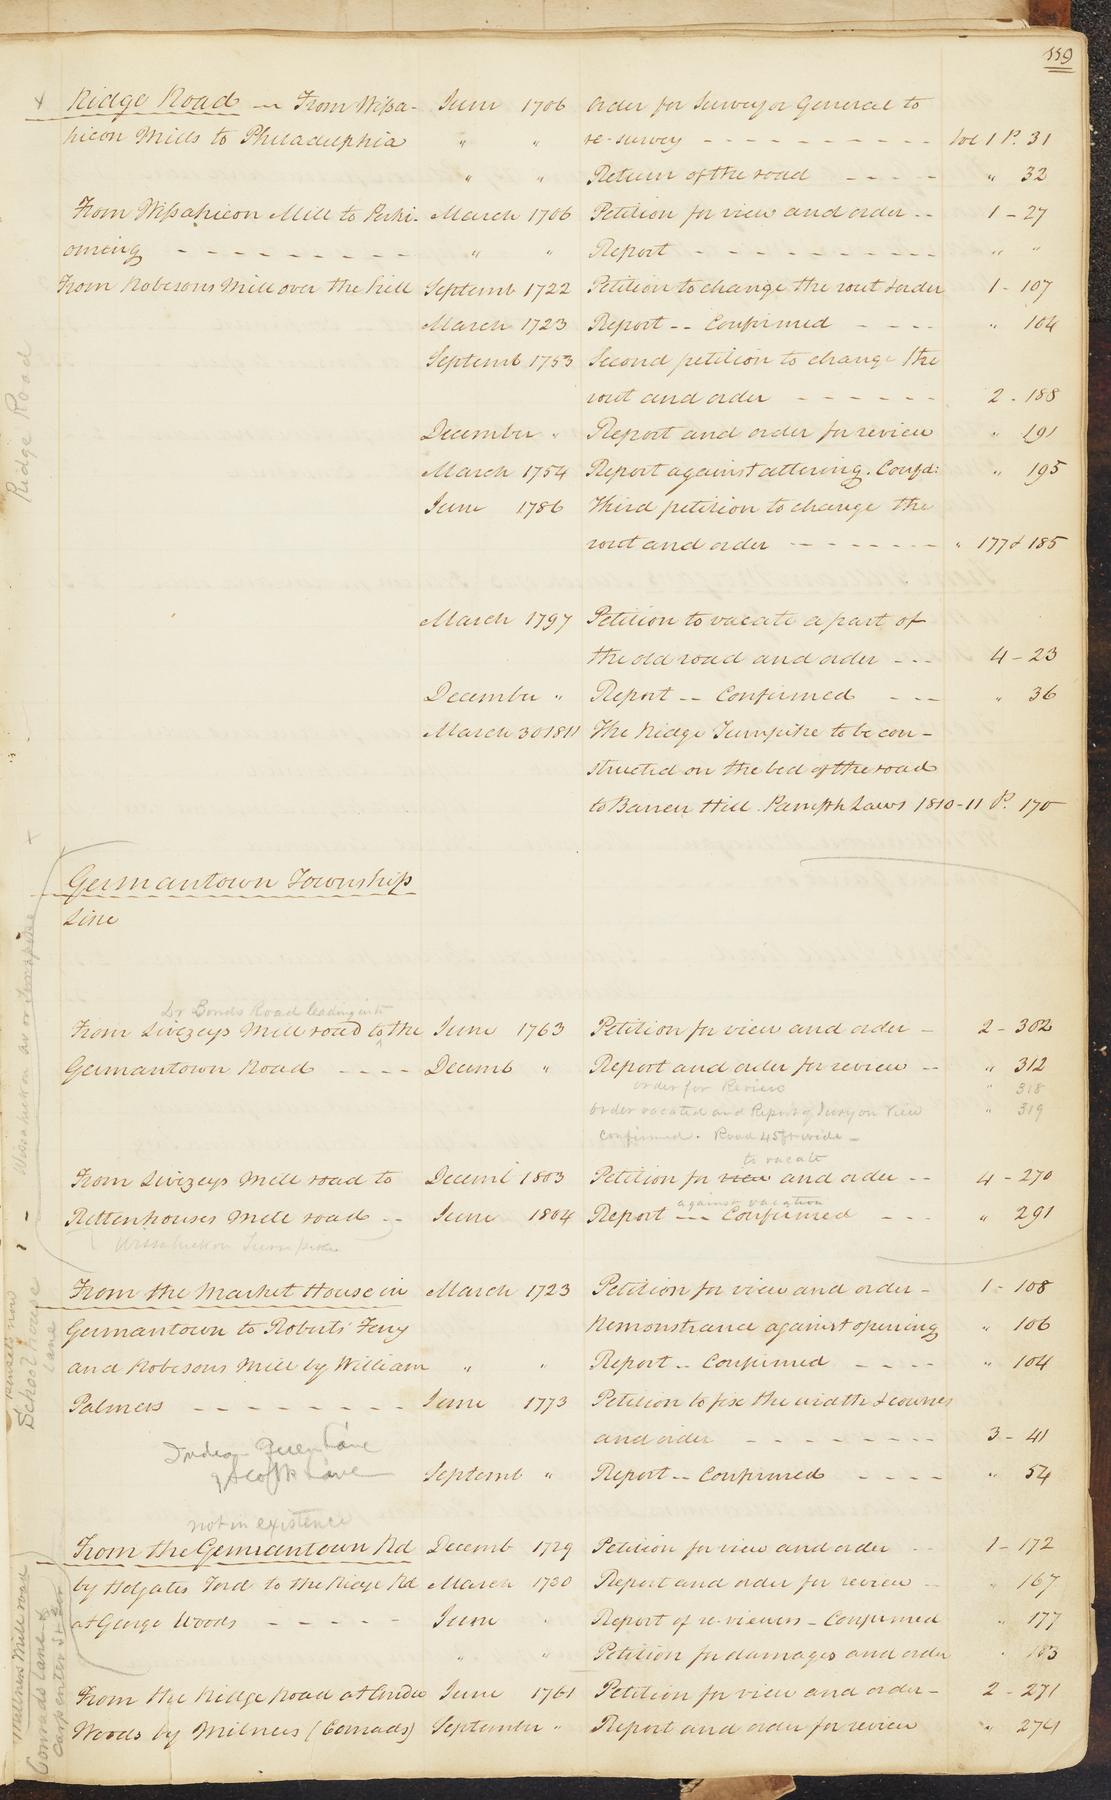 119
Ridge Road -- From Wissa- June 1706 Order for Surveyor General to
hicon Mills to Philadelphia " " re-survey - - - - - - - - - - Vol 1 P. 31
" " Return of the road - - - - - " 32
From Wissahicon Mill to Perki- March 1706 Petition for view and order -- 1 - 27
oming - - - - - - - - - " " Report - - - - - - - - - - - " "
From Robesons Mill over the hill Septemb 1722 Petition to change the rout & order 1 - 107
March 1723 Report -- Confirmed - - - - " 104
Septemb 1753 Second petition to change the
rout and order - - - - - - 2 - 188
December " Report and order for review " 191
March 1754 Report against altering. Confd: " 195
June 1786 Third petition to change the
rout and order - - - - - - - " 177 & 185
March 1797 Petition to vacate a part of
the old road and order - - - 4 - 23
December " Report -- Confirmed - - - " 36
March 30 1811 The Ridge Turnpike to be con-
structed on the bed of the road
to Barren Hill. Pamph Laws 1810-11 P. 170
Ridge Road
Germantown Township
Line
Dr Bonds Road leading into
From Livezeys Mill road to the June 1763 Petition for view and order - 2 - 302
Germantown Road - - - - Decemb " Report and order for review -- " 312
order for Review " 318
order vacated and Report of Jury on View " 319
confirmed. Road 45 ft wide -
to vacate
From Livezeys Mill road to Decemb 1803 Petition for view and order -- 4 - 270
against vacation
Rittenhouses Mill road -- June 1804 Report --- Confirmed - - - " 291
Wissahickon Turnpike
Wissahickon av or Turnpike
From the Market House in March 1723 Petition for view and order - 1 - 108
Germantown to Roberts' Ferry Remonstrance against opening " 106
and Robesons Mill by William " " Report -- Confirmed - - - - " 104
Palmers - - - - - - - - June 1773 Petition to fix the width & cources
and order - - - - - - - - 3 - 41
Indian Queen Lane
& Scotts Lane Septemb " Report -- Confirmed - - - - " 54
School house
Lane
not in existence
From the Germantown Rd Decemb 1729 Petition for view and order - - 1 - 172
by Holgates Ford to the Ridge Rd March 1730 Report and order for review -- " 167
at George Woods - - - - - June " Report of re-viewers - Confirmed " 177
" " Petition for damages and order " 183
From the Ridge Road at Andw June 1761 Petition for view and order - 2 - 271
Woods by Milners (Conrads) September " Report and order for review " 274
Milners Mill road
Conrads Lane &
Carpenter St